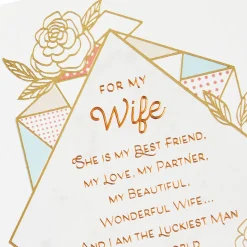 FOR MY
Wife
SHE IS MY BEST FRIEND,
MY LOVE, MY PARTNER,
MY BEAUTIFUL,
WONDERFUL WIFE...
AND I AM THE LUCKIEST MAN